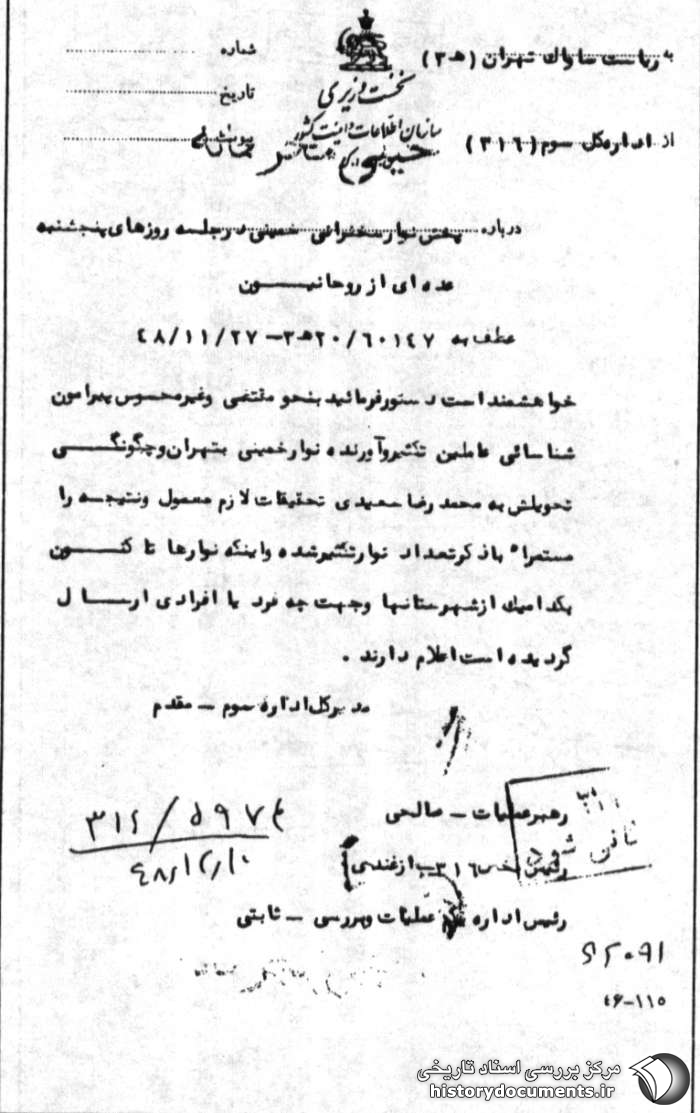 به ریاست ساواک تهران (ه‍ ۳)
شماره
نخست وزیری
تاریخ
سازمان اطلاعات و امنیت کشور
از اداره کل سوم (۳۱۶)
پیوست
درباره پخش نوار سخنرانی خمینی در جلسه روزهای پنجشنبه
عده ای از روحانیون
عطف به ۲۰/۶۰۱۴۷ه‍ ۳-۴۸/۱۱/۲۷
خواهشمند است دستور فرمائید بنحو مقتضی و غیر محسوس پیرامون
شناسائی عاملین تکثیر و آورنده نوار خمینی بتهران و چگونگی
تحویلش به محمد رضا سعیدی تحقیقات لازم معمول و نتیجه را
مستمرا" با ذکر تعداد نوار تکثیر شده و اینکه نوارها تا کنون
بکدامیک از شهرستانها و جهت چه فرد یا افرادی ارسال
گردیده است اعلام دارند.
مدیر کل اداره سوم - مقدم
رهبر عملیات - صالحی
۳۱۶
رئیس بخش ۳۱۶ - ازغندی
رئیس اداره عملیات و بررسی - ثابتی
۴۶-۱۱۵
مرکز بررسی اسناد تاریخی
historydocuments.ir